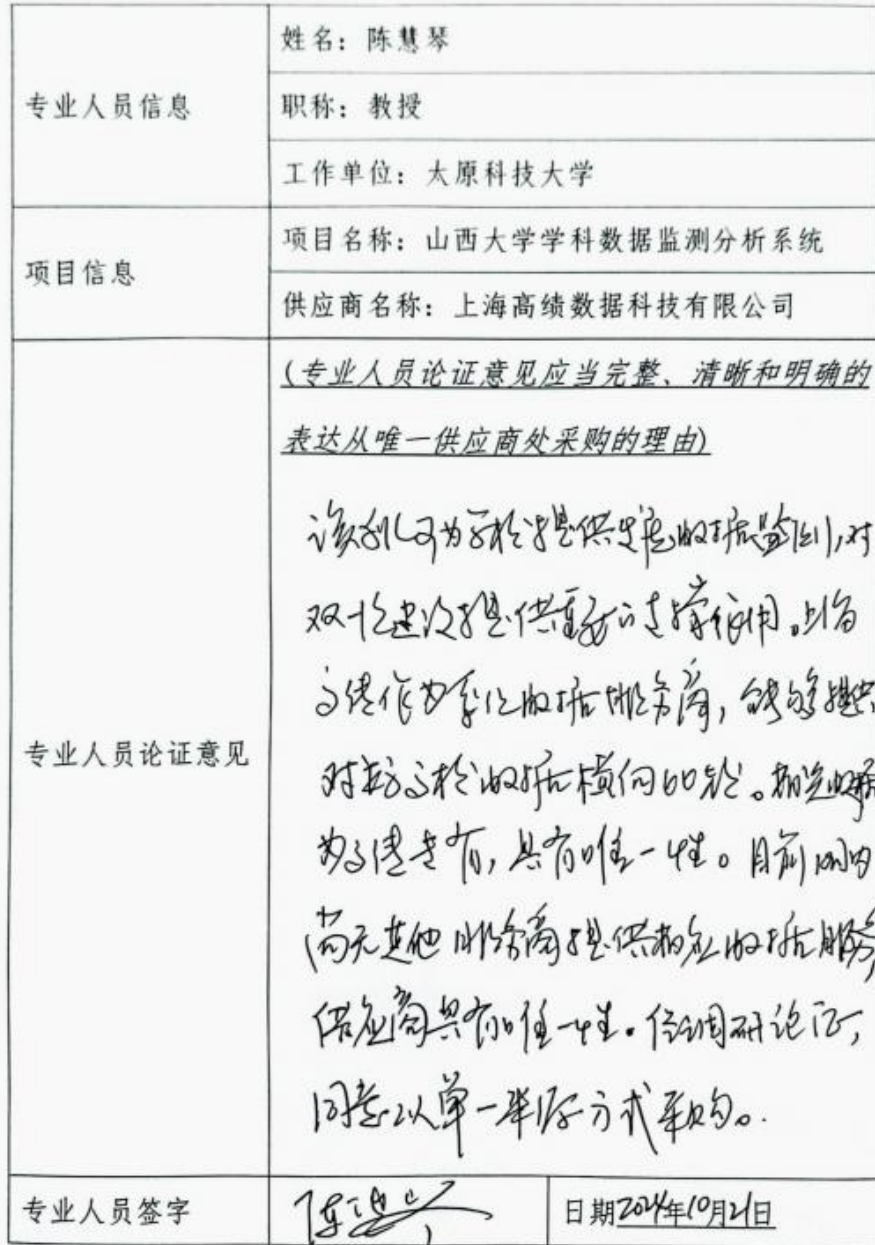 专业人员信息
姓名：陈慧琴
职称：教授
工作单位：太原科技大学
项目信息
项目名称：山西大学学科数据监测分析系统
供应商名称：上海高绩数据科技有限公司
专业人员论证意见
(专业人员论证意见应当完整、清晰和明确的
表达从唯一供应商处采购的理由)
该系统可为学校提供完整数据监测,对
双一流建设提供重要的支撑作用。上海
高绩作为专业数据服务商,能够提供
对标高校数据横向对比。相关数据
为高绩专有,具有唯一性。目前国内
尚无其他服务商提供相应数据服务,
供应商具有唯一性。经调研论证,
同意以单一来源方式采购。
专业人员签字
陈慧琴
日期2024年10月21日